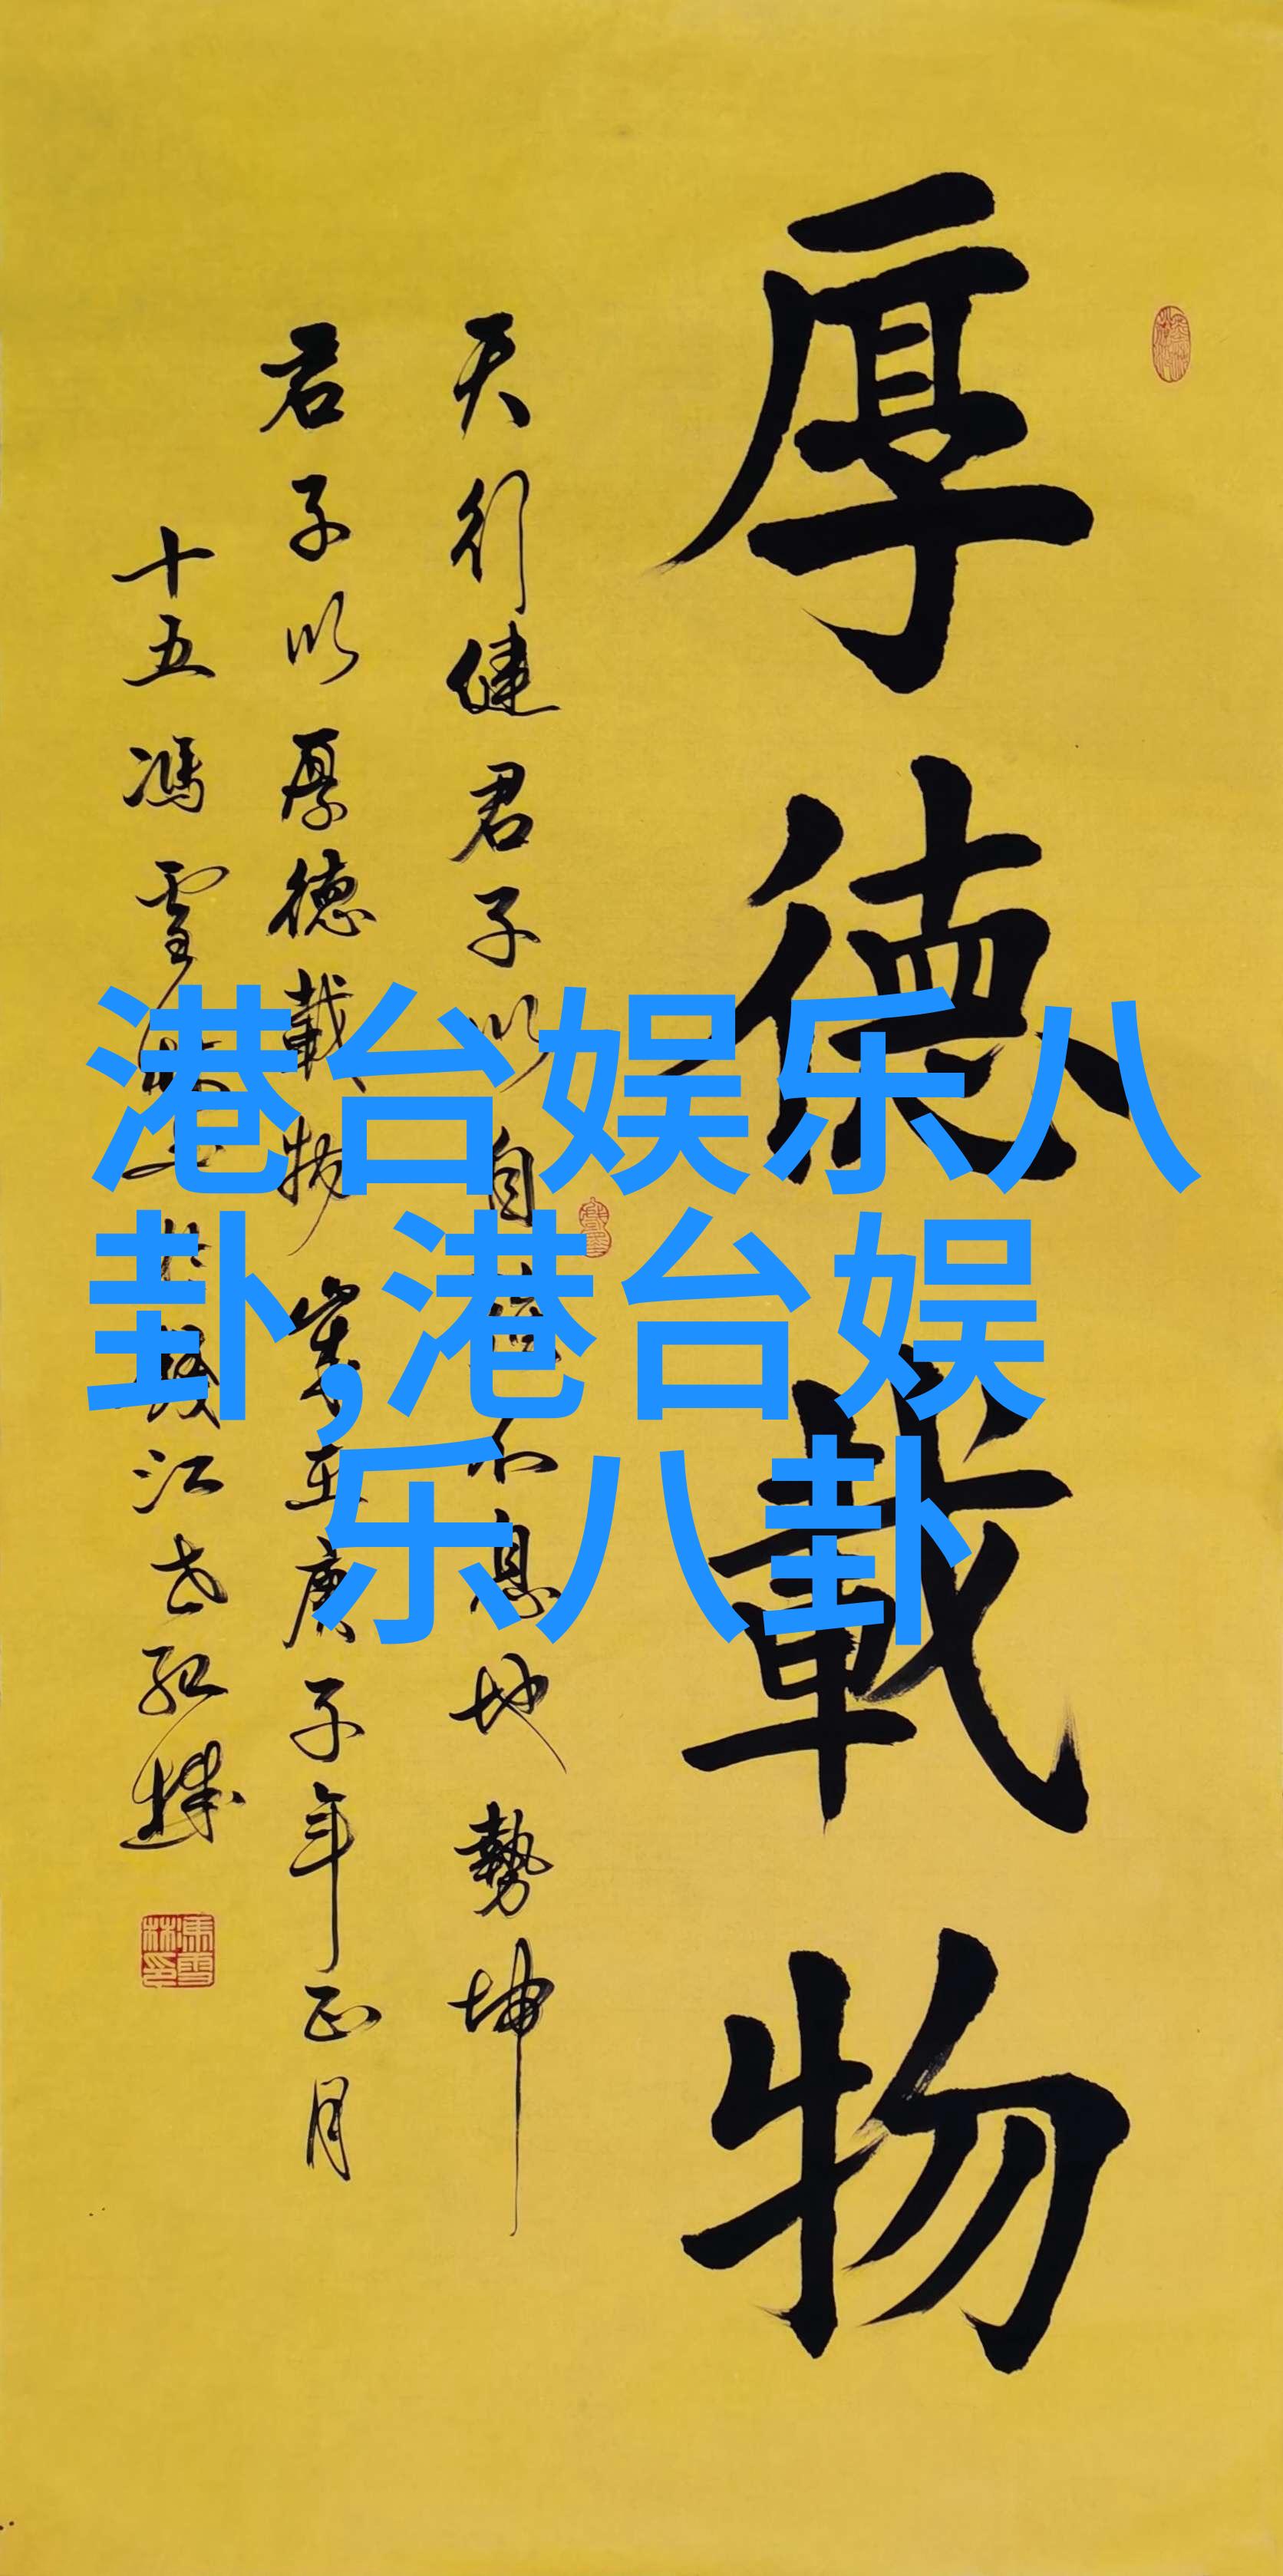 厚德載物
天行健君子以自强不息地勢坤
君子以厚德載物 歲在庚子年正月
十五馮雪林
江
港台娱乐八
卦,港台娱
乐八卦
馮雪林印